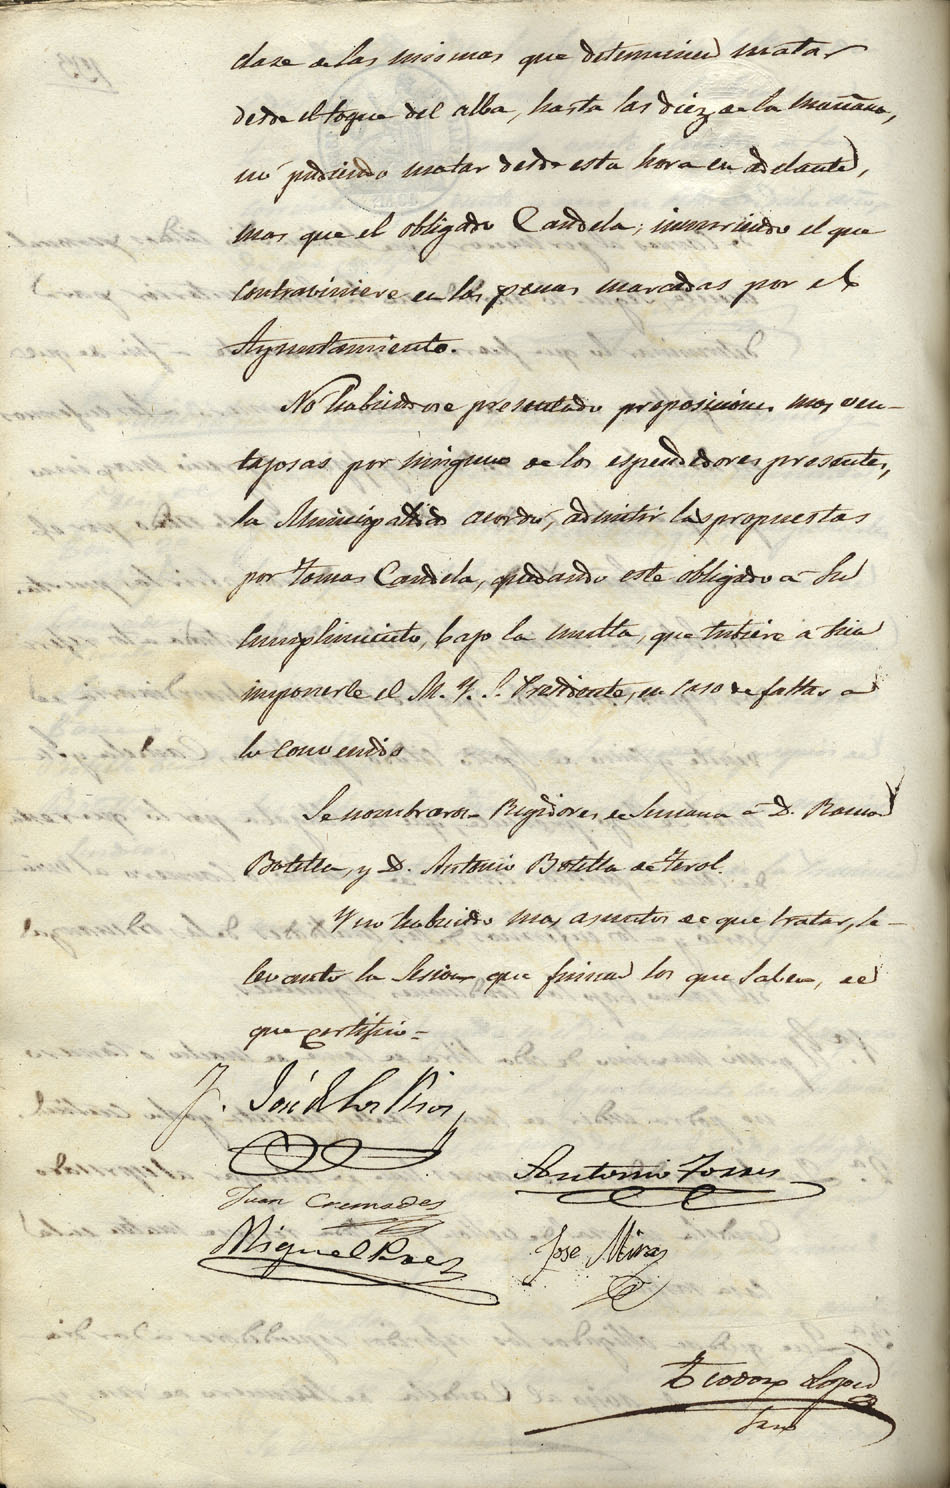 clase de las mismas que determinen matar
desde el toque del alba, hasta las diez de la mañana,
nó pudiendo matar desde esta hora en adelante,
mas que el obligado Candela; incurriendo el que
contraviniere en las penas marcadas por el
Ayuntamiento.
No habiendose presentado proposiciones mas ven-
tajosas por ninguno de los espendedores presentes,
la Municipalidad acordó, admitir las propuestas
por Tomas Candela, quedando este obligado á su
cumplimiento, bajo la multa, que tubiere á bien
imponerle el M. Y. S. Presidente, en caso de faltar a
lo convenido
Se nombraron Regidores de Semana á D. Ramon
Botella, y D. Antonio Botella de Terol.
Y no habiendo mas asuntos de que tratar, se
levantó la Sesion que firman los que saben, de
que certifico=
José de los Rios
Antonio Torres
Juan Cremades
Miguel Paez
Jose Mira
Teodoro Lopez